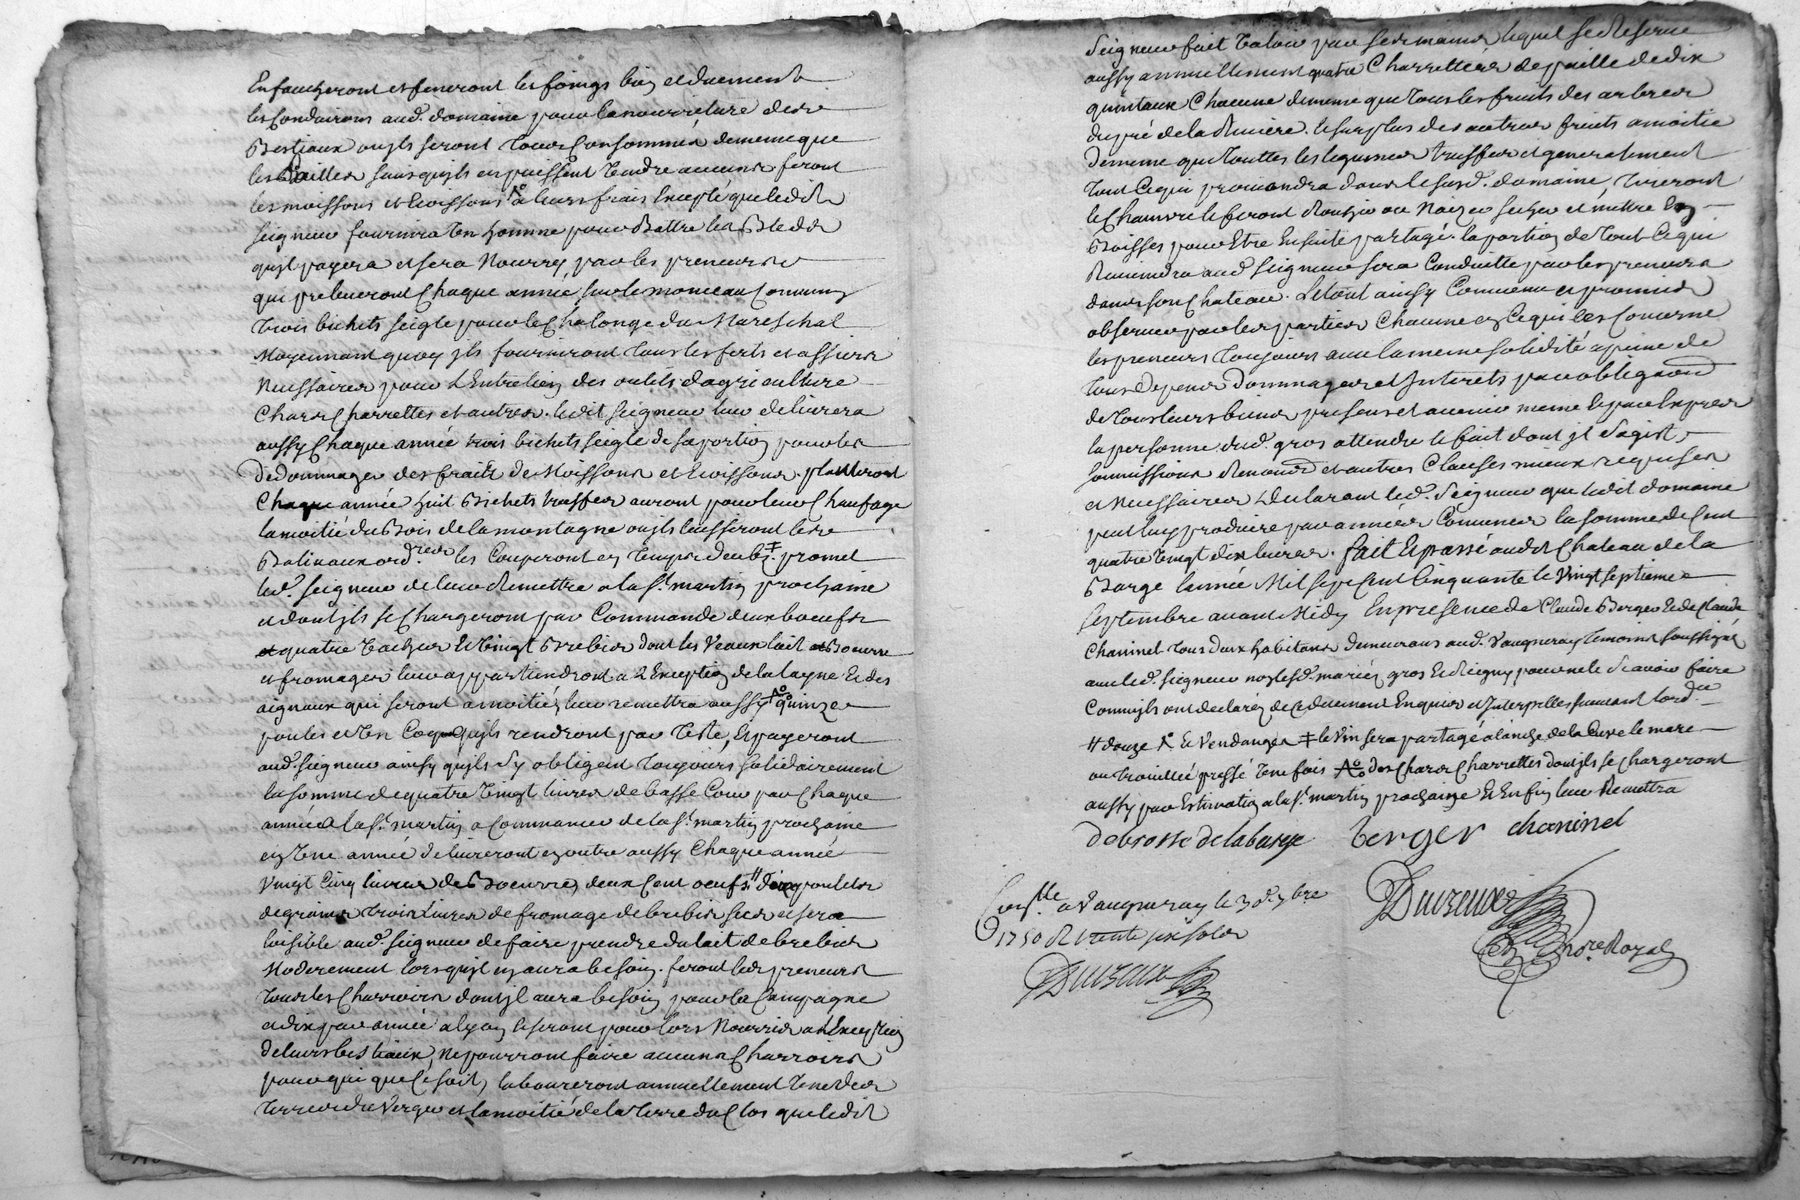 En faucheront et feneront les foings bien et duement
les Conduiront aud. domaine pour la nourreture des
Bestiaux ou ils seront tous Consommés de meme que
les Pailles sans quils en puissent Vendre aucunes feront
les moissons et Ecoissons A° a leurs frais Excepte que ledit
seigneur fournira Un homme pour Battre les Bleds
quil payera et sera Nourry par les preneurs
qui preleveront Chaque année sur le monceau Commun
trois bichets seigle pour le Chalonge du Mareschal
Moyennant quoy ils fourniront tous les ferts et assiers
Necessaires pour L'Entretien des outils d'agriculture
Chars Charrettes et autres. ledit seigneur leur delivrera
aussy Chaque année trois bichets seigle de sa portion pour les
Dedommager des fraitt de Moissons et Ecoissons. planteront
Chaque année huit Bichets truffes auront pour leur Chaufage
la moitié du Bois de la montagne ou ils laisseront les
Balivaux ord.res les Couperont en temps deub ‡. promet
led. seigneur de leur Remettre a la St. martin prochaine
et dont ils se Chargeront par Commande deux boeufs
et quatre Vaches Et Vingt Brebies dont les Veaux lait et Beurre
et fromages leur appartiendront a L'Exception de la layne Et des
aigneaux qui seront a moitié, leur remettra aussy A° quinze
poules et Un Coq quils rendront par Teste, Et payeront
aud. seigneur ainsy quils s'y obligent toujours solidairement
la somme de quatre Vingt livres de basse Cour par Chaque
année a la St. martin a Commancer de la St. martin prochaine
en Une année delivreront en outre aussy Chaque année
Vingt Cinq livres de Beurre, deux Cent oeufs, # dix poulets
de grains trois livres de fromage de brebis sec et sera
loisible aud. seigneur de faire prendre du lait de brebies
Moderement lorsquil en aura besoin. feront les preneurs
tous les Charrois dont il aura besoin pour la Campagne
et dix par année a lyon et seront pour lors Nourris a L'Exception
de leurs bestiaux, ne pourront faire aucuns Charrois
pour qui que Ce soit, laboureront annuellement Une des
terres du Verger et la moitié de la terre du Clos que ledit
Seigneur fait Valoir par ses mains, lequel se Reserve
aussy annuellement quatre Charrettees de paille de dix
quintaux Chacune de meme que tous les fruits des arbres
du pré de la Riviere. le surplus des autres fruits a moitié
de meme que touttes les legumes truffes et generalement
tout Ce qui proviendra dans le susd. domaine, tireront
le Chanvre le feront Rouhir ou Naizer secher et mettre En
Boisses pour Etre Ensuite partagé. la portion de tout Ce qui
Reviendra aud. seigneur sera Conduitte par les preneurs
dans son Chateau. Le tout ainsy Convenu et promis
observer par les parties Chacune en Ce qui les Concerne
les preneurs toujours avec la meme solidité a peine de
tous depens dommages et Interets par obligaon
de tous leurs biens presens et avenir meme le par Expres
la personne dud. gros attendu le fait dont il s'agist
soumissions Renoncons et autres Clauses mieux requises
et Necessaires Declarant led. Seigneur que ledit domaine
peut luy produire par années Comunes la somme de Cent
quatre Vingt dix livres. fait Et passé aud. Chateau de la
Barge l'année Mil sept Cent Cinquante le Vingt septieme
septembre avant Midy En presence de Claude Berger Et de Claude
Chaninel tous deux habitans Demeurans aud. Vaugneray temoins soussignés
avec led. seigneur non lesd. mariés gros Et Reigny pour ne le Scavoir faire
Comme ils ont declarés de Ce duement Enquis et Interpellés suivant l'ord.ce
# douze A° Et Vendanges ‡ le Vin sera partagé a l'anche de la Cuve le marc
ou trouillié pressé Une fois A° des Chars Charrettes dont ils se Chargeront
aussy par Estimation a la St. martin prochaine Et Enfin leur Remettra
debrosse de la barge berger chaninel
Con.lle a Vaugneray le 3 d. 7bre
1750 R. trente six solos
Duizeux
Duizeux
No.re Royal